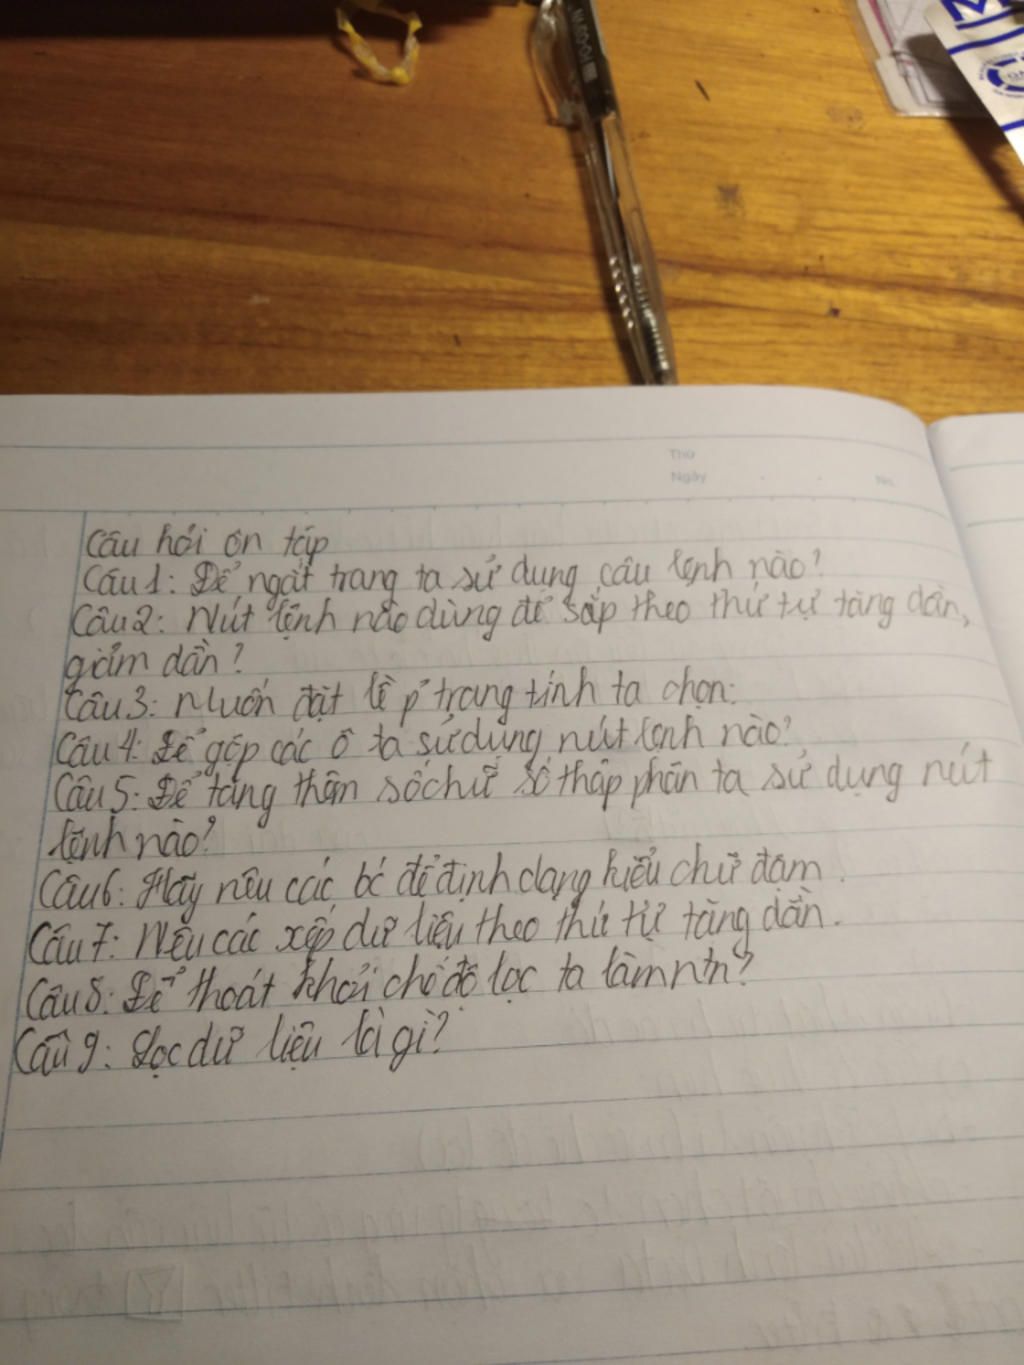 Thứ
Ngày
No.
Câu hỏi ôn tập
Câu 1: Để ngắt trang ta sử dụng câu lệnh nào?
Câu 2: Nút lệnh nào dùng để sắp theo thứ tự tăng dần,
giảm dần?
Câu 3: Muốn đặt lề p' trang tính ta chọn:
Câu 4: Để gộp các ô ta sử dụng nút lệnh nào?
Câu 5: Để tăng thêm số chữ số thập phân ta sử dụng nút
lệnh nào?
Câu 6: Hãy nêu các b' để định dạng kiểu chữ đậm.
Câu 7: Nêu các xếp dữ liệu theo thứ tự tăng dần.
Câu 8: Để thoát khỏi chế độ lọc ta làm ntn?
Câu 9: Lọc dữ liệu là gì?